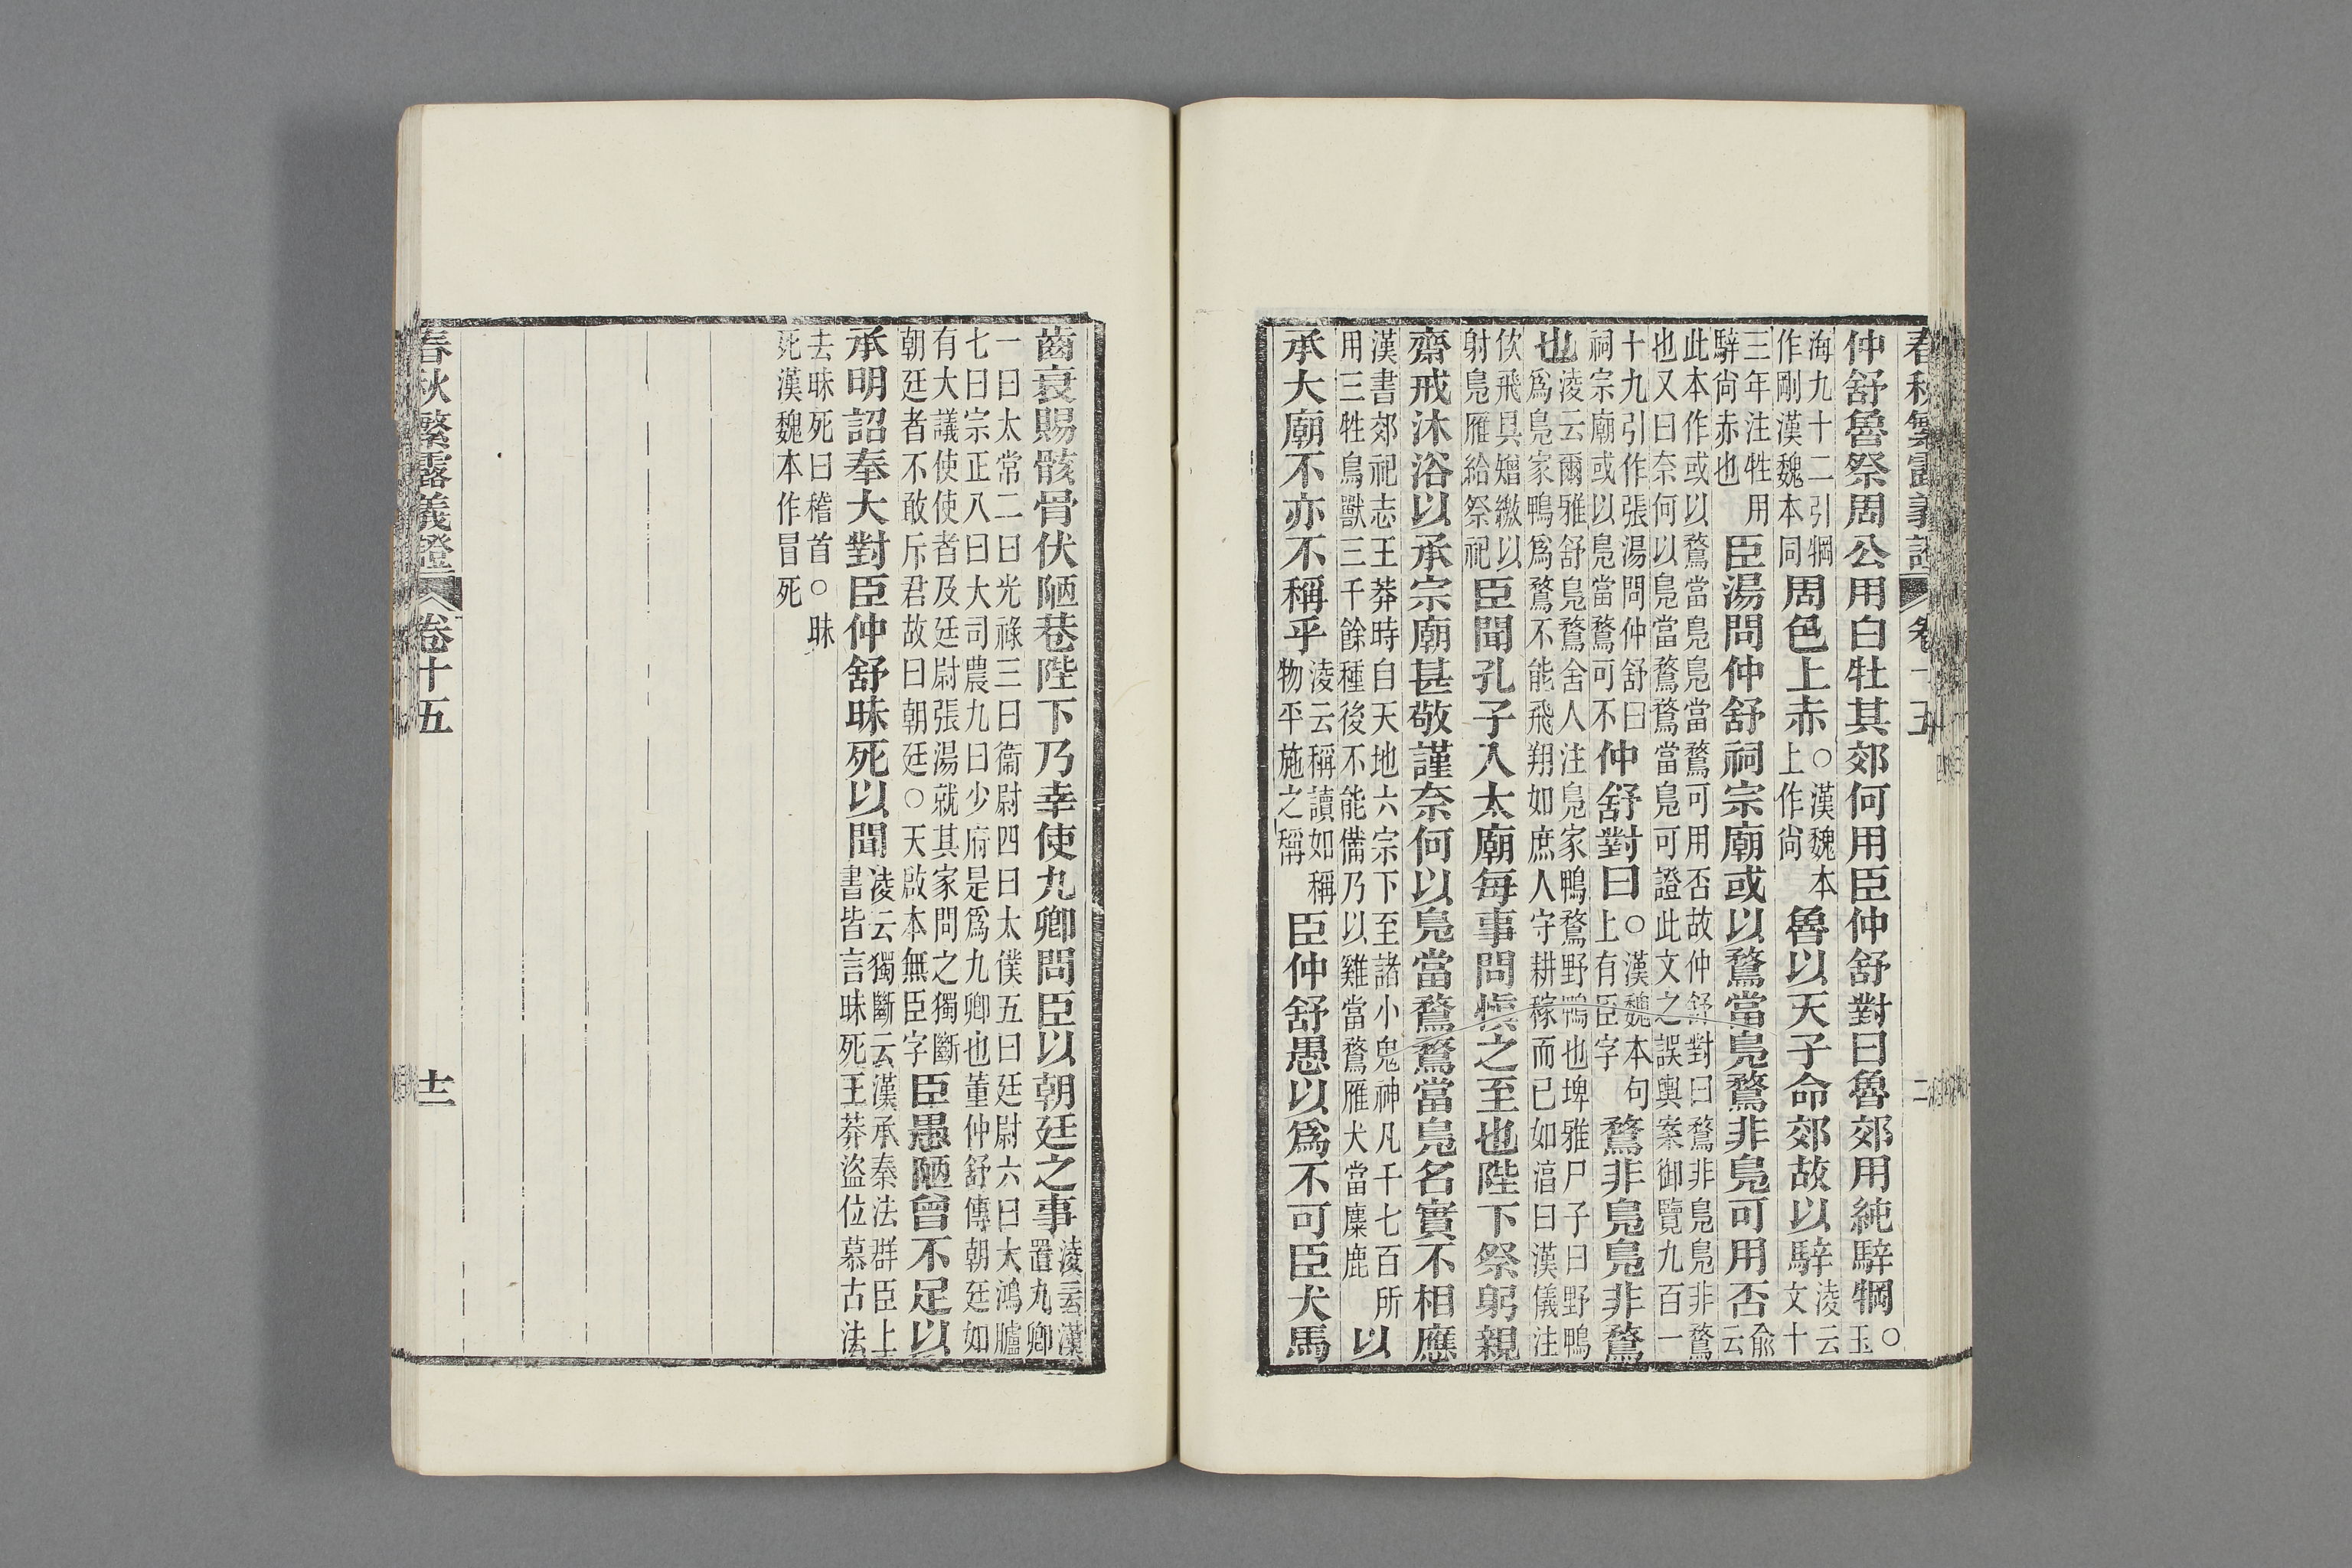 春秋繁露義證 卷十五
仲舒魯祭周公用白牡其郊何用臣仲舒對曰魯郊用純騂犅○玉
海九十二引犅作剛漢魏本同周色上赤○漢魏本上作尚魯以天子命郊故以騂淩云文十
三年注牲用騂尚赤也臣湯問仲舒祠宗廟或以鶩當鳧鶩非鳧可用否俞云
此本作或以鶩當鳧鳧當鶩可用否故仲舒對曰鶩非鳧鳧非鶩
也又曰奈何以鳧當鶩鶩當鳧可證此文之誤輿案御覽九百一
十九引作張湯問仲舒曰祠宗廟或以鳧當鶩可不仲舒對曰○漢魏本句上有臣字鶩非鳧鳧非鶩
也淩云爾雅舒鳧鶩舍人注鳧家鴨鶩野鴨也埤雅尸子曰野鴨爲鳧家鴨爲鶩不能飛翔如庶人守耕稼而已如淳曰漢儀注
佽飛具矰繳以射鳧雁給祭祀臣聞孔子入太廟每事問愼之至也陛下祭躬親
齋戒沐浴以承宗廟甚敬謹奈何以鳧當鶩鶩當鳧名實不相應
漢書郊祀志王莽時自天地六宗下至諸小鬼神凡千七百所用三牲鳥獸三千餘種後不能備乃以雞當鶩雁犬當麋鹿以
承大廟不亦不稱乎淩云稱讀如稱物平施之稱臣仲舒愚以爲不可臣犬馬
齒衰賜骸骨伏陋巷陛下乃幸使九卿問臣以朝廷之事淩云漢置九卿
一曰太常二曰光祿三曰衞尉四曰太僕五曰廷尉六曰大鴻臚
七曰宗正八曰大司農九曰少府是爲九卿也董仲舒傳朝廷如
有大議使使者及廷尉張湯就其家問之獨斷
朝廷者不敢斥君故曰朝廷○天啟本無臣字臣愚陋曾不足以
承明詔奉大對臣仲舒昧死以聞淩云獨斷云漢承秦法群臣上書皆言昧死王莽盜位慕古法
去昧死曰稽首○昧
死漢魏本作冒死
春秋繁露義證 卷十五 十二